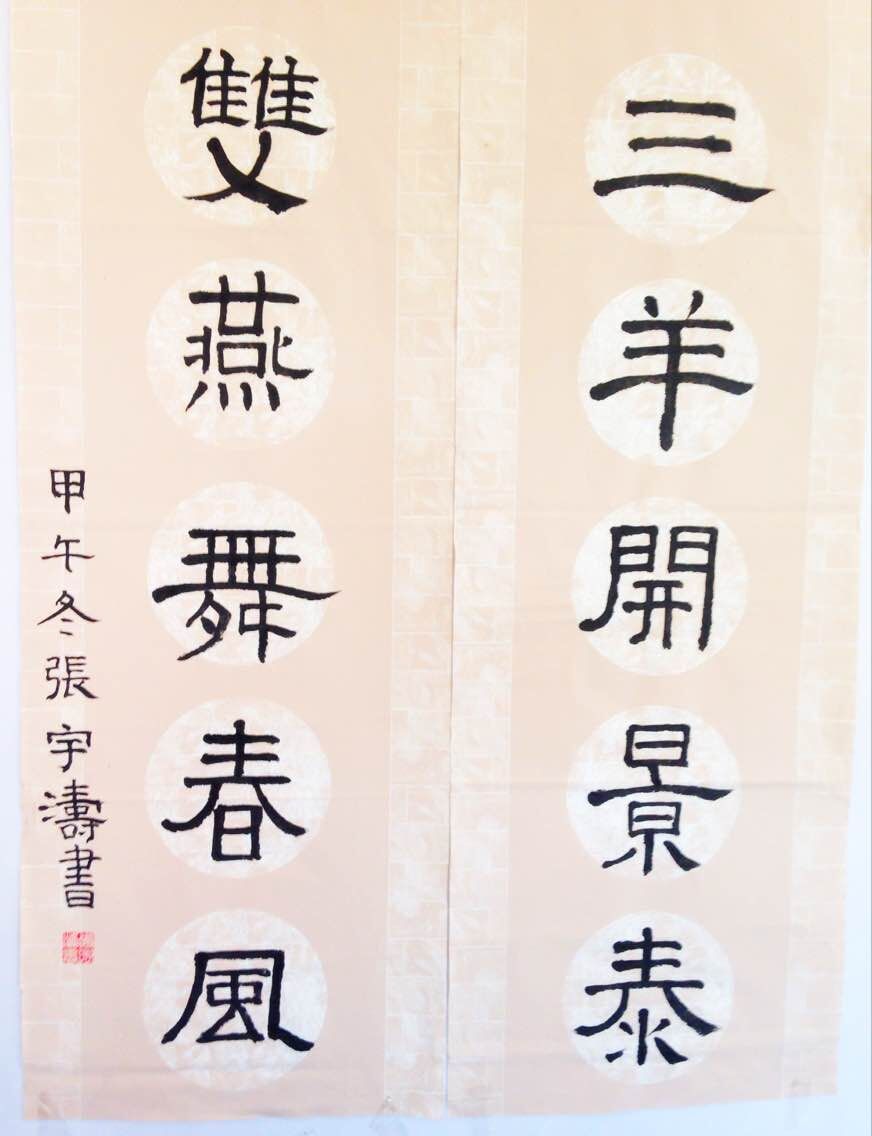 三羊開景泰
雙燕舞春風
甲午冬張宇濤書